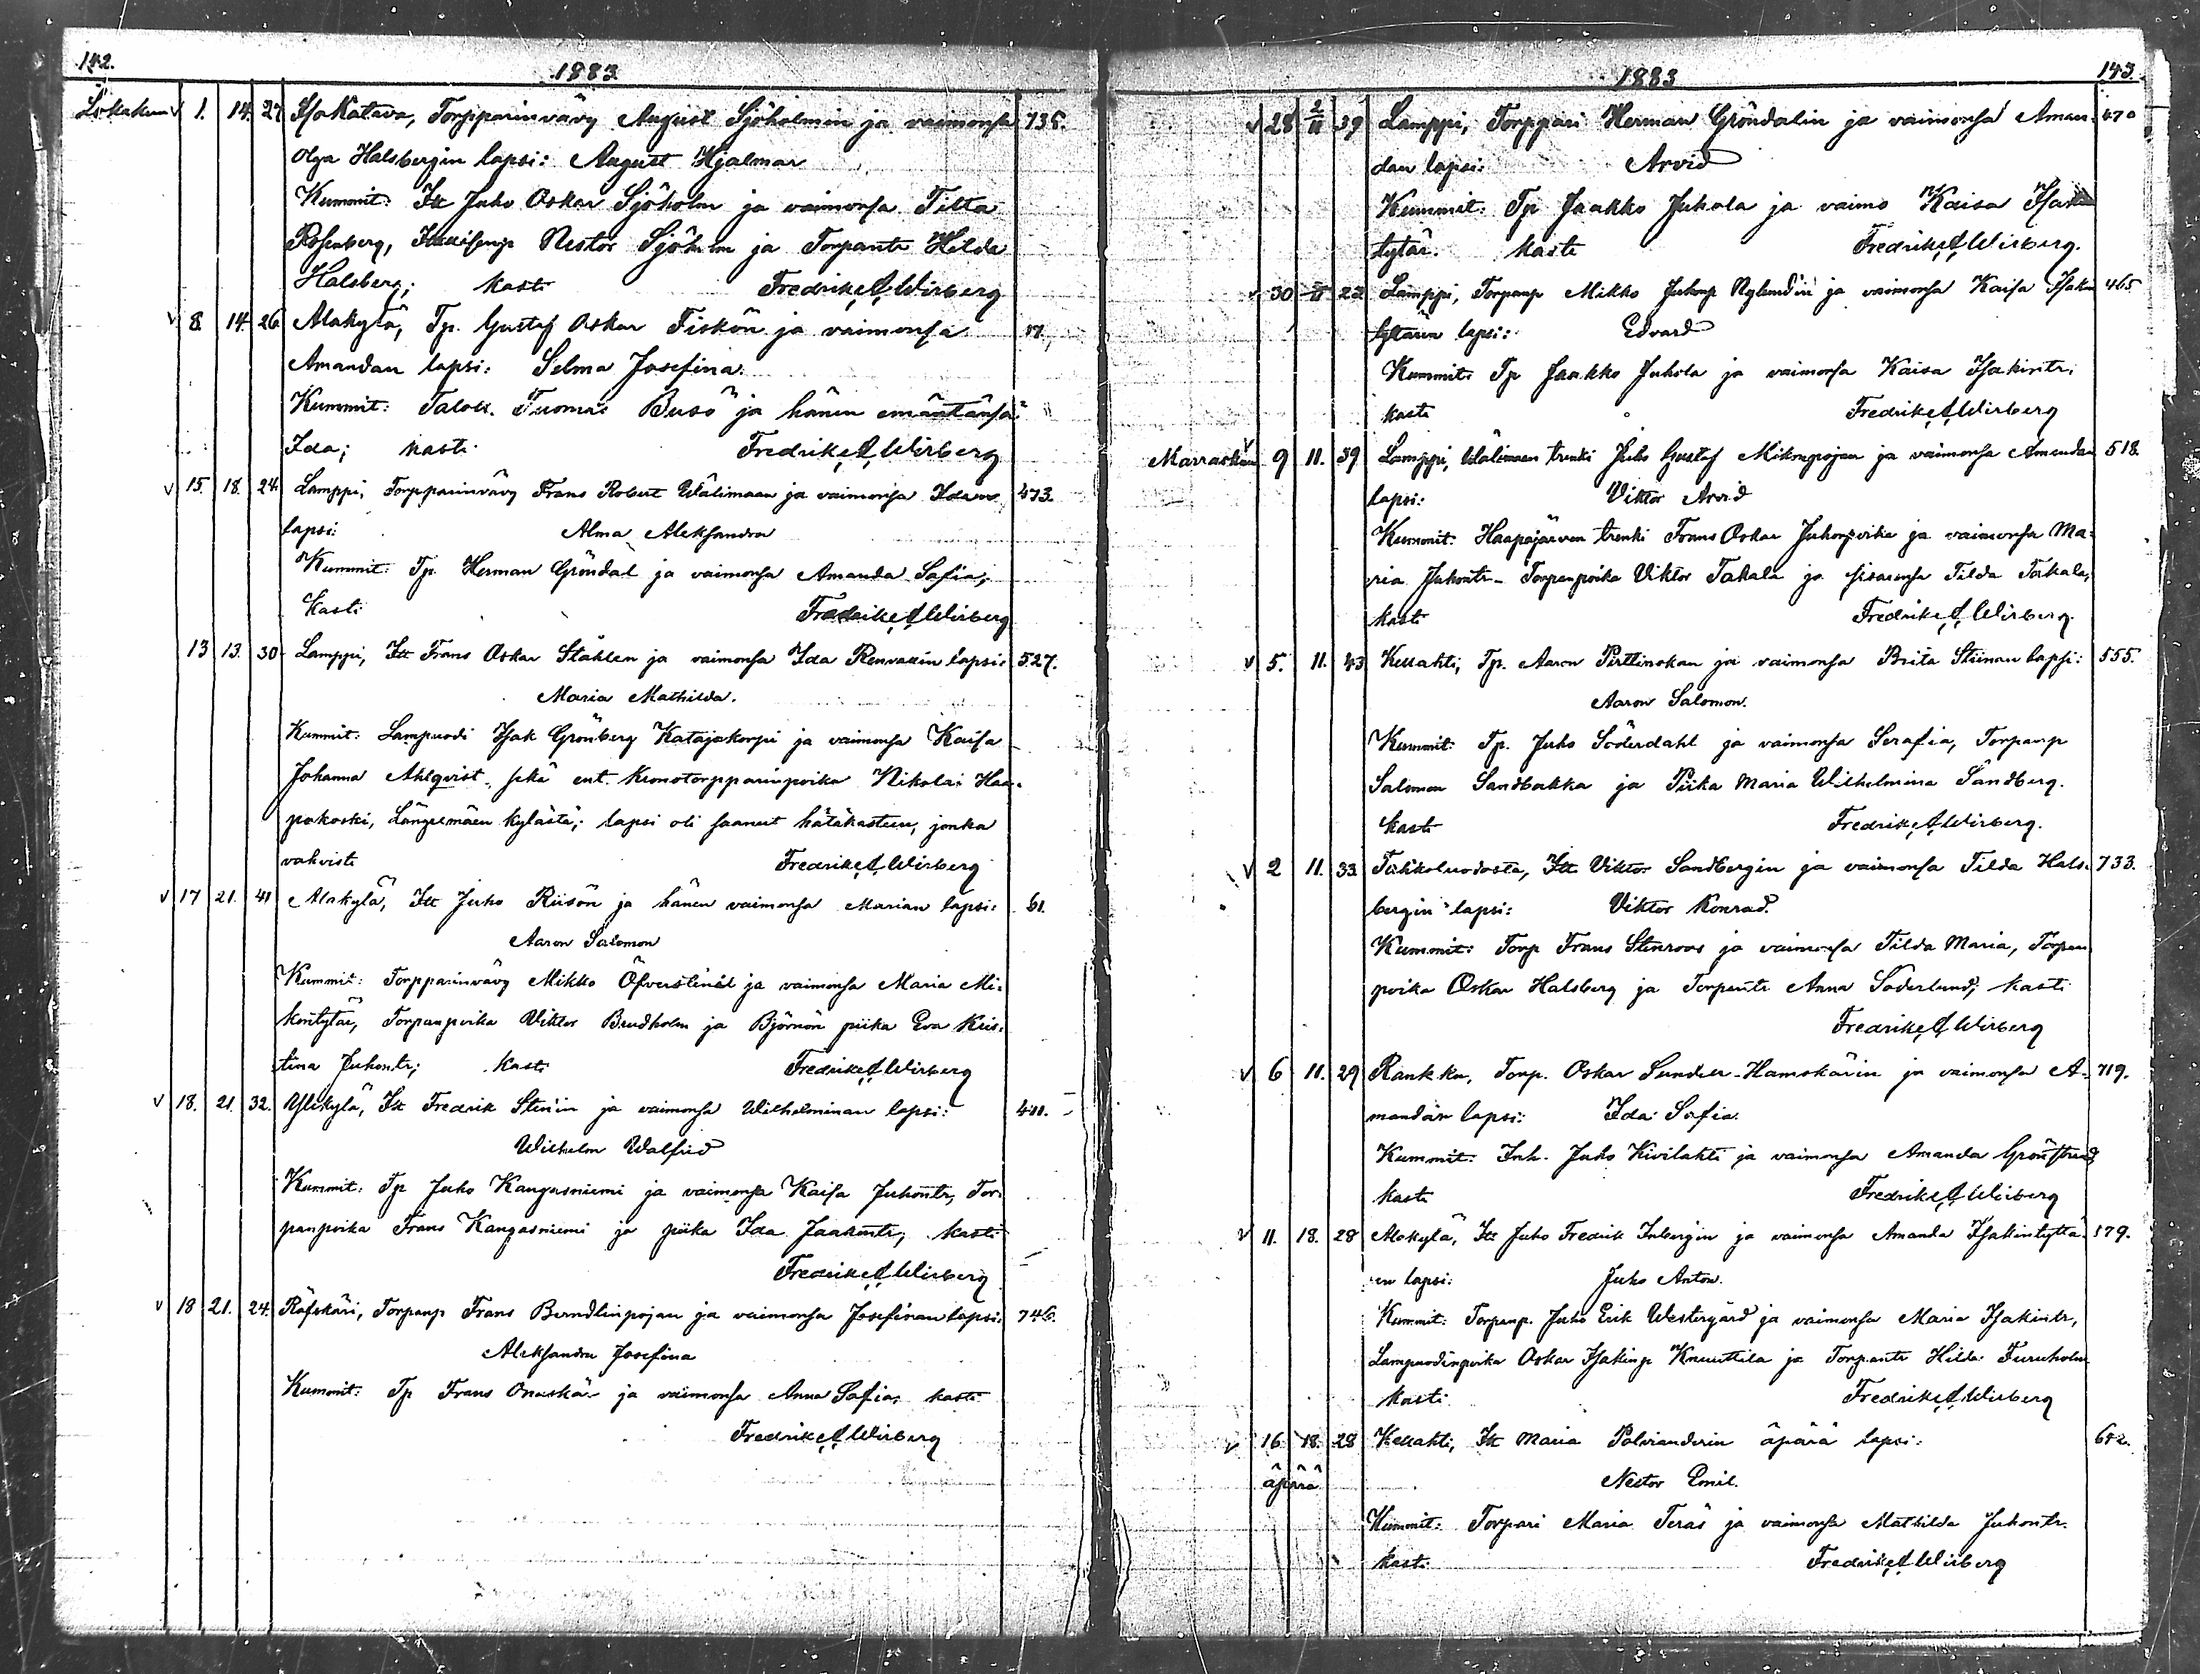 142.
1883
Lokakuu v 1. 14. 27 Isokatava, Torpparinvävy August Sjöholmin ja vaimonsa 735.
Olga Halsbergin lapsi: August Hjalmar
Kummit: Itt Juho Oskar Sjöholm ja vaimonsa Tilta
Rosenberg, Nestor Sjöholm ja Torpantr Hilda
Halsberg; kasti Fredrik A Wirberg
v 8. 14. 26 Alakylä, Tp. Gustaf Oskar Fiskön ja vaimonsa 17,
Amandan lapsi: Selma Josefina.
Kummit: Talol. Tuomas Busö ja hänen emäntänsä
Ida; kasti Fredrik A Wirberg
v 15. 18. 24. Lamppi, Torpparinvävy Frans Robert Wälimaan ja vaimonsa Idan 473.
lapsi: Alma Aleksandra
Kummit: Tp. Herman Gröndal ja vaimonsa Amanda Sofia;
kasti Fredrik A Wirberg
13 13. 30 Lamppi, Itt Frans Oskar Ståhlen ja vaimonsa Ida Renvallin lapsi: 527.
Maria Mathilda.
Kummit: Lampuodi Isak Grönberg Katajakorpi ja vaimonsa Kaisa
Johanna Ahlqvist sekä ent. Kruunotorpparinpoika Nikolai Haa-
pakoski, Längelmäen kylästä; lapsi oli saanut hätäkasteen, jonka
vahvisti Fredrik A Wirberg
v 17 21. 41 Alakylä, Itt Juho Riisön ja hänen vaimonsa Marian lapsi: 61.
Aaron Salomon
Kummit: Torpparinvävy Mikko Öfverstinål ja vaimonsa Maria Mi-
kontytär, Torpanpoika Viktor Brudholm ja Björnön piika Eva Kris-
tina Juhontr; kasti Fredrik A Wirberg
v 18. 21. 32. Ylikylä, Itt Fredrik Stenin ja vaimonsa Wilhelminan lapsi: 441.
Wilhelm Walfrid
Kummit: Tp Juho Kangasniemi ja vaimonsa Kaisa Juhontr, Tor-
panpoika Frans Kangasniemi ja piika Ida Jaakontr; kasti
Fredrik A Wirberg
v 18 21. 24. Räfskäri, Torpanp Frans Berndtinpojan ja vaimonsa Josefinan lapsi: 746.
Aleksandra Josefina
Kummit: Tp Frans Onaskär ja vaimonsa Anna Sofia; kasti
Fredrik A Wirberg
1883 143.
v 28 2/11 39 Lamppi, Torppari Herman Gröndalin ja vaimonsa Aman- 470
dan lapsi: Arvid
Kummit: Tp Jaakko Juhola ja vaimo Kaisa Isakin
tytär. kasti Fredrik A Wirberg.
v 30 2/11 22 Lamppi, Torpanp Mikko Juhonp Nylundin ja vaimonsa Kaisa Isakin 465
tyttären lapsi: Edvard
Kummit: Tp Jaakko Juhola ja vaimonsa Kaisa Isakintr;
kasti Fredrik A Wirberg
Marraskuu v 9 11. 39 Lamppi, Wälimaan trenki Juho Gustaf Mikonpojan ja vaimonsa Amandan 518.
lapsi: Viktor Arvid
Kummit: Haapajärven trenki Frans Oskar Juhonpoika ja vaimonsa Ma-
ria Juhontr. Torpanpoika Viktor Takala ja sisarensa Tilda Takala,
kasti Fredrik A Wirberg.
v 5. 11. 43 Kellahti, Tp. Aaron Pirttinokan ja vaimonsa Brita Stiinan lapsi: 555.
Aaron Salomon.
Kummit: Tp. Juho Söderdahl ja vaimonsa Serafia, Torpanp
Salomon Sandbakka ja Piika Maria Wilhelmina Sandberg.
kasti Fredrik A Wirberg.
v 2 11. 33. Tahkoluodosta, Itt Viktor Sandbergin ja vaimonsa Tilda Hals- 733.
bergin lapsi: Viktor Konrad.
Kummit: Torp Frans Stenroos ja vaimonsa Tilda Maria, Torpan
poika Oskar Halsberg ja Torpantr Anna Söderlund; kasti
Fredrik A Wirberg
v 6 11. 29 Rankku, Torp. Oskar Sunder-Hamskärin ja vaimonsa A- 719.
mandan lapsi: Ida Sofia.
Kummit: Inh. Juho Kivilahti ja vaimonsa Amanda Grönstrand
kasti Fredrik A Wirberg
v 11. 18. 28 Alakylä, Itt Juho Fredrik Inbergin ja vaimonsa Amanda Isakintyttä- 179.
ren lapsi: Juho Anton.
Kummit: Torpanp. Juho Erik Westergård ja vaimonsa Maria Isakintr,
Lampuodinpoika Oskar Isakinp Knuuttila ja Torpantr Hilda Furuholm
kasti Fredrik A Wirberg
v 16 18. 28 Kellahti, Itt Maria Polvianderin äpärä lapsi: 682.
äpärä Nestor Emil.
Kummit: Torpari Maria Teräs ja vaimonsa Mathilda Juhontr.
kasti Fredrik A Wirberg